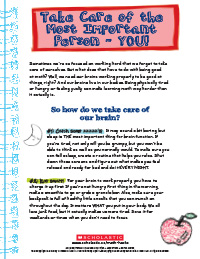 Take Care of the
Most Important
Person - YOU!
Sometimes we're so focused on working hard that we forget to take
care of ourselves. But what does that have to do with being good
at math? Well, we need our brains working properly to be good at
things, right? And our brains live in our bodies. Being physically tired
or hungry or feeling yucky can make learning math way harder than
it actually is.
So how do we take care of
our brain?
It may sound a bit boring but
sleep is THE most important thing for brain function. If
you're tired, not only will you be grumpy, but you won't be
able to think as well as you normally would. To make sure you
can fall asleep, create a routine that helps you relax. Shut
down those screens and figure out what makes you feel
relaxed and ready for bed and do it EVERY NIGHT.
For your brain to work properly you have to
charge it up first. If you're not hungry first thing in the morning,
make a smoothie to go or grab a granola bar. Also, make sure your
backpack is full of healthy little snacks that you can munch on
throughout the day. It matters WHAT you put in your body. We all
love junk food, but it actually makes us more tired. Save it for
weekends or times when you don't need to focus.
SCHOLASTIC